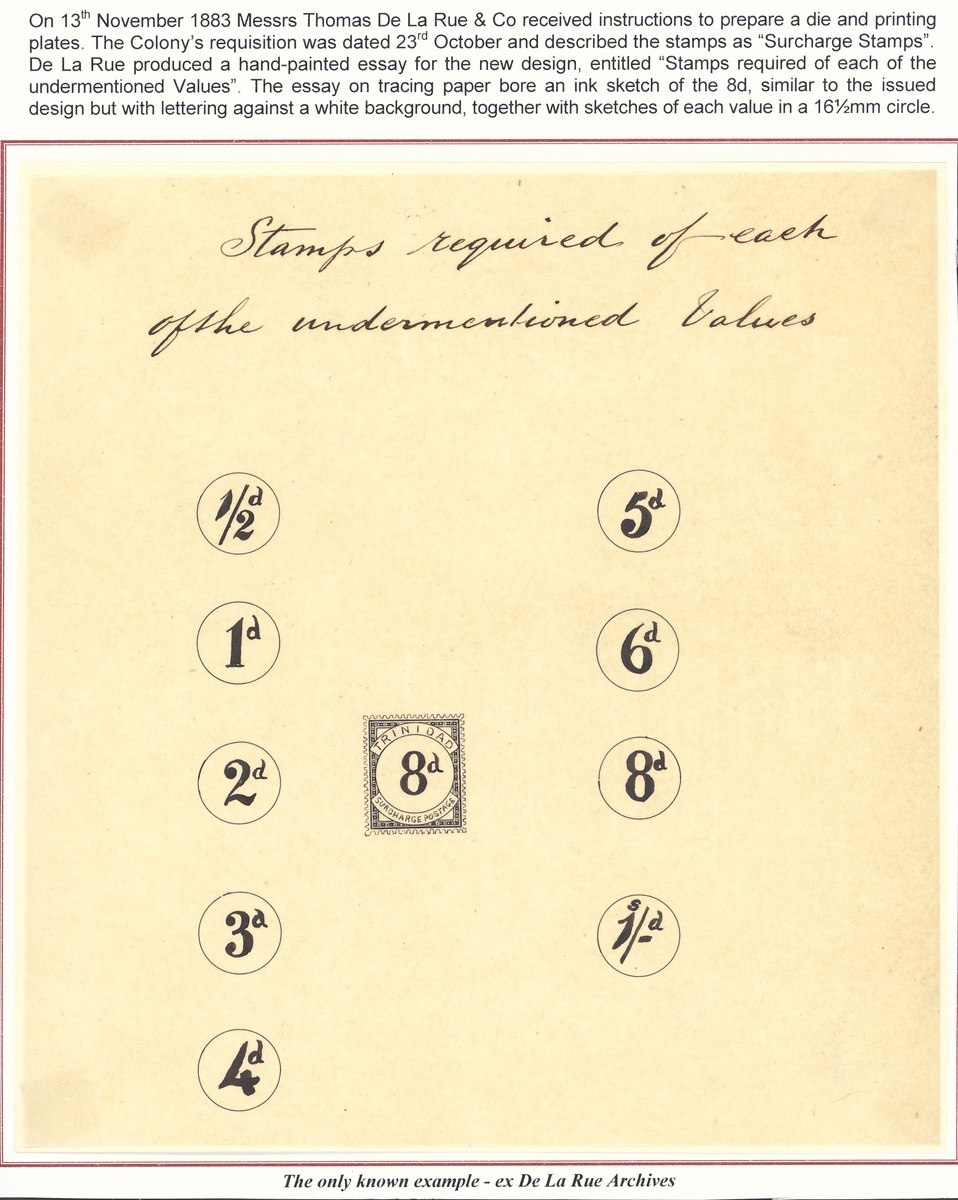 On 13th November 1883 Messrs Thomas De La Rue & Co received instructions to prepare a die and printing
plates. The Colony's requisition was dated 23rd October and described the stamps as “Surcharge Stamps”.
De La Rue produced a hand-painted essay for the new design, entitled “Stamps required of each of the
undermentioned Values”. The essay on tracing paper bore an ink sketch of the 8d, similar to the issued
design but with lettering against a white background, together with sketches of each value in a 16½mm circle.
Stamps required of each
of the undermentioned Values
1/2d
5d
1d
6d
TRINIDAD
8d
SURCHARGE POSTAGE
2d
8d
3d
1s/-d
4d
The only known example - ex De La Rue Archives